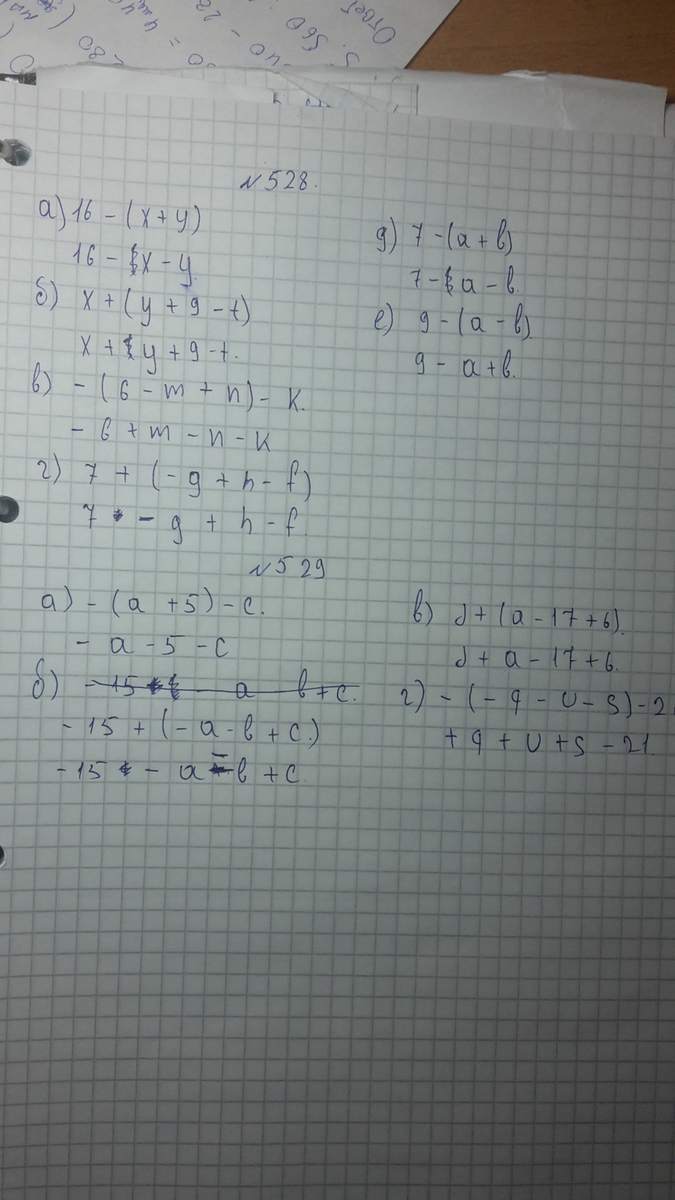 Ответ
5. 560
№528.
а) 16 - (x + y)
16 - x - y.
б) x + (y + 9 - t)
x + y + 9 - t.
в) - (6 - m + n) - k.
- 6 + m - n - k
г) 7 + (- g + h - f)
7 - g + h - f.
д) 7 - (a + b)
7 - a - b.
е) 9 - (a - b).
9 - a + b.
№529
а) - (a + 5) - c.
- a - 5 - c
б) - 15 a b + c.
- 15 + (- a - b + c.)
- 15 - a - b + c.
в) d + (a - 17 + 6).
d + a - 17 + 6.
г) - (- q - u - s) - 2
+ q + u + s - 21.